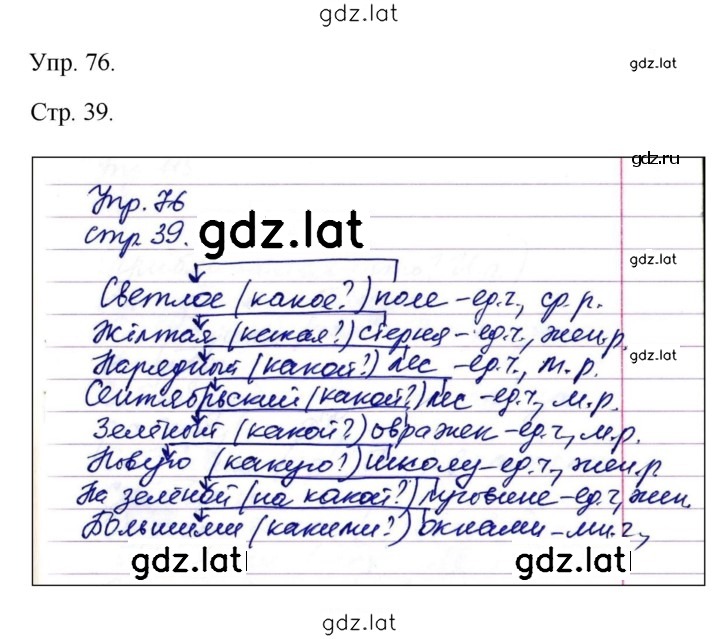 gdz.lat
Упр. 76.
gdz.lat
Стр. 39.
gdz.ru
Упр. 76
стр 39.
gdz.lat
gdz.lat
Светлое (какое?) поле – ед.ч., ср. р.
Жёлтая (какая?) стерня – ед.ч., жен.р.
Нарядный (какой?) лес – ед.ч., м. р.
gdz.lat
Сентябрьский (какой?) лес – ед.ч., м.р.
Зелёный (какой?) овражек – ед.ч., м.р.
Новую (какую?) школу – ед.ч., жен.р
На зелёной (на какой?) луговине – ед.ч, жен.
Большими (какими?) окнами – мн.ч.,
gdz.lat
gdz.lat
gdz.lat